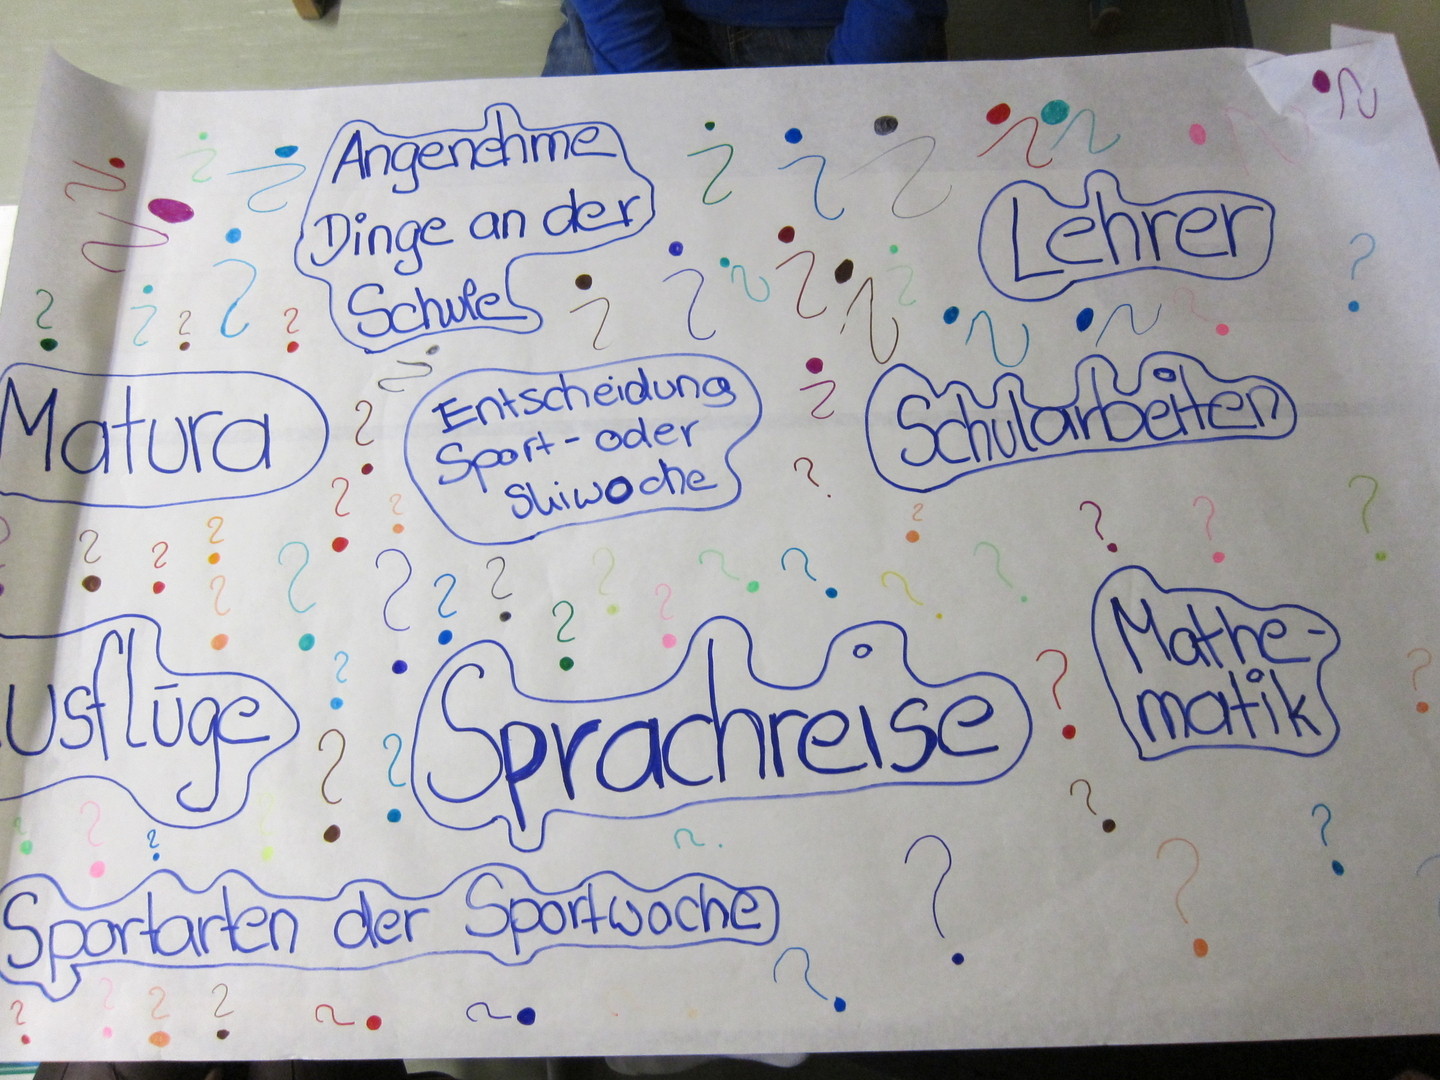 Angenehme
Dinge an der
Schule
Lehrer
Matura
Entscheidung
Sport- oder
Skiwoche
Schularbeiten
usflüge
Sprachreise
Mathe-
matik
Sportarten der Sportwoche